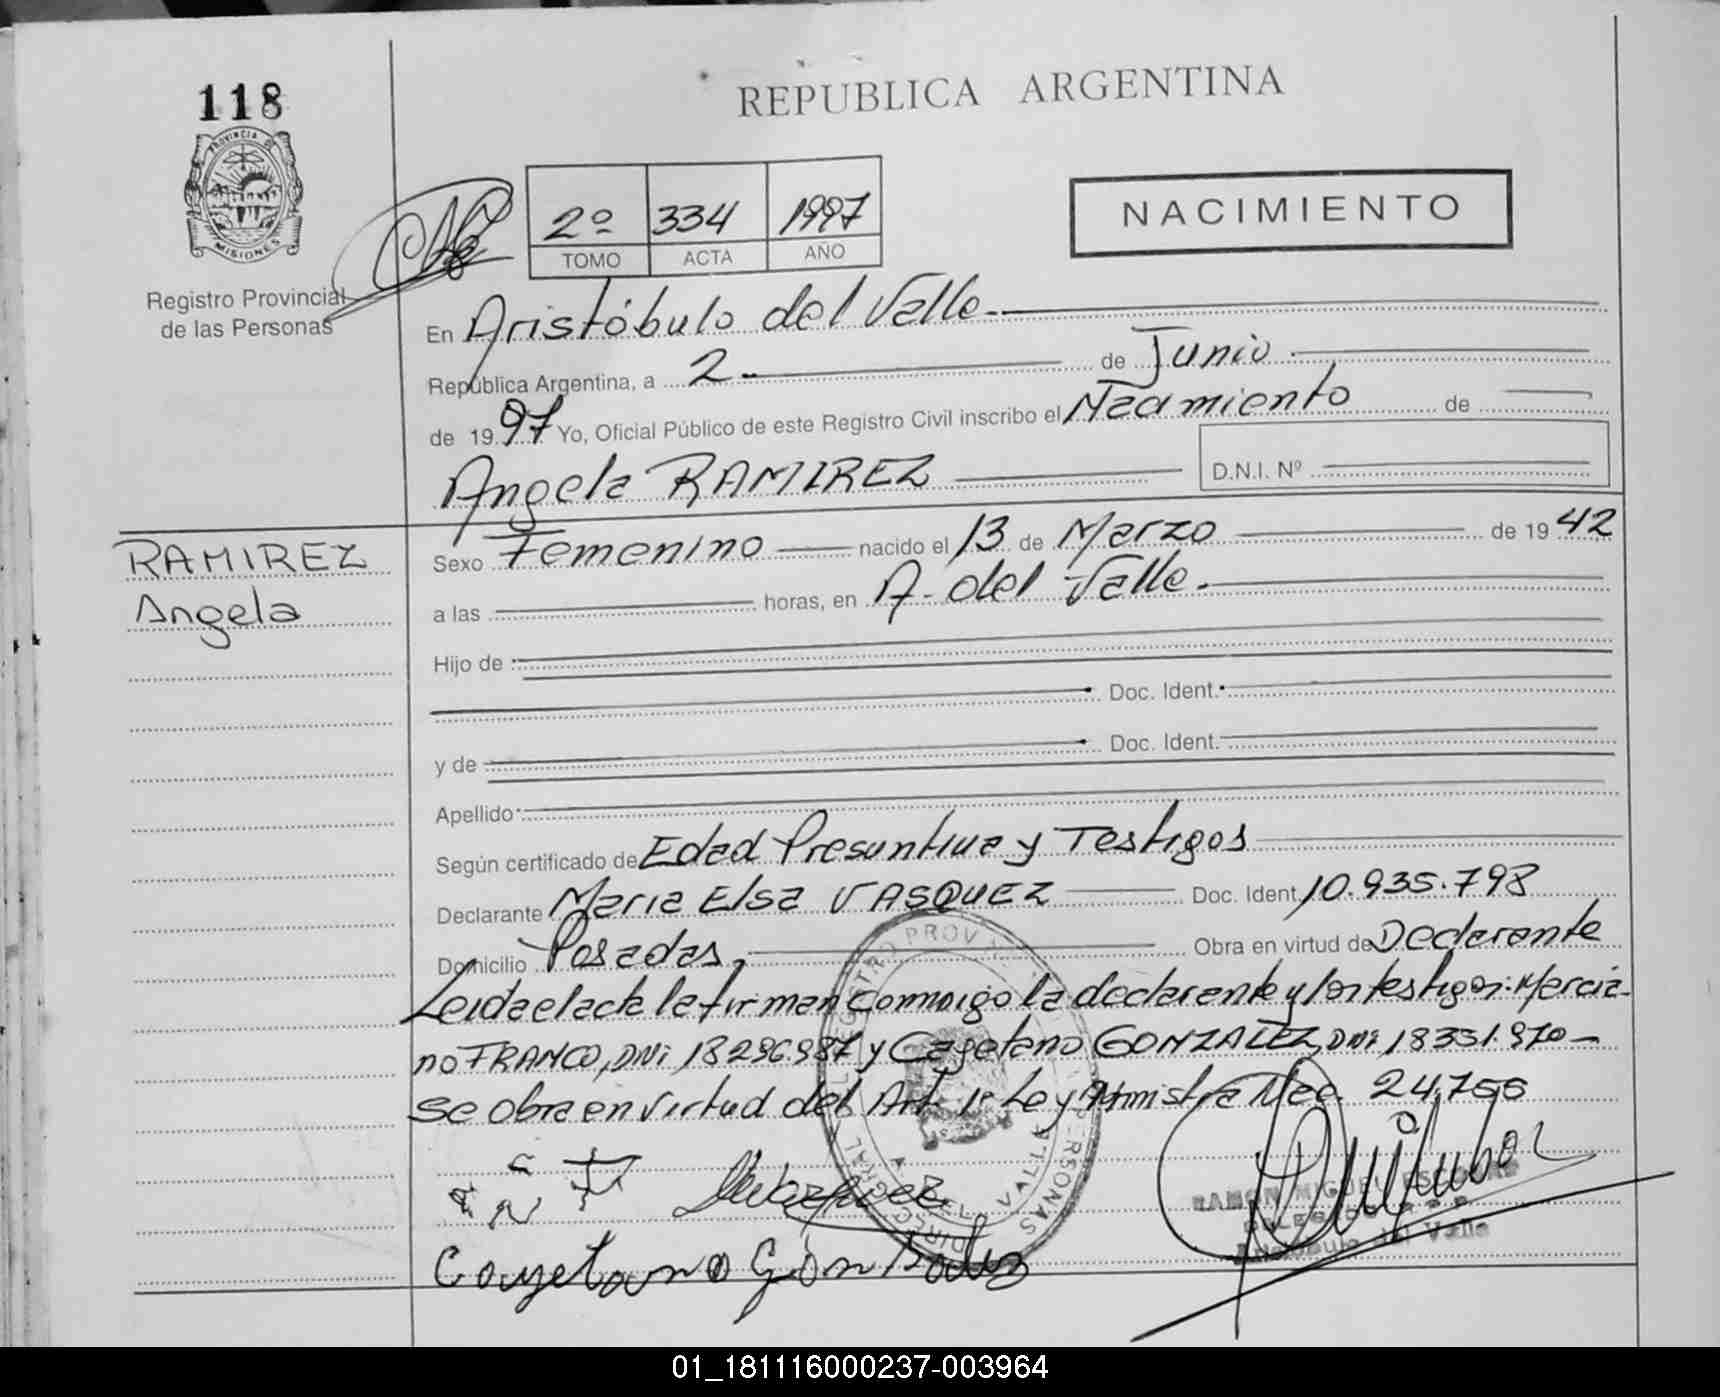 118
REPUBLICA ARGENTINA
PROVINCIA DE
MISIONES
Registro Provincial
de las Personas
2º 334 1997
TOMO ACTA AÑO
NACIMIENTO
En Aristóbulo del Valle
República Argentina, a 2 de Junio
de 1997 Yo, Oficial Público de este Registro Civil inscribo el Nacimiento de
Angela RAMIREZ D.N.I. Nº
RAMIREZ
Angela
Sexo Femenino nacido el 13 de Marzo de 1942
a las horas, en A. del Valle.
Hijo de
Doc. Ident.
y de Doc. Ident.
Apellido
Según certificado de Edad Presuntiva y Testigos
Declarante Maria Elsa VASQUEZ Doc. Ident. 10.935.798
Domicilio Posadas, Obra en virtud de Declarante
Leida el acta la firman conmigo la declarante y los testigos: Marcia-
no FRANCO, DNi 18296987 y Cayetano GONZALEZ, DNi 18351.970
se obra en virtud del Art. 1º Ley Amnistia Nac. 24.755
Cayetano
RAMON MIGUEL
Aristobulo del Valle
01_181116000237-003964